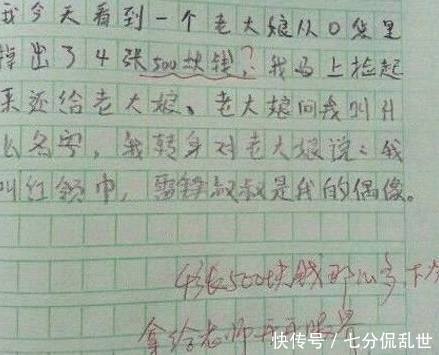 我今天看到一个老大娘从口袋里
掉出了4张500块钱?我马上捡起
来还给老大娘、老大娘问我叫什
么名字,我转身对老大娘说:我
叫红领巾,雷锋叔叔是我的偶像。
4张500块钱那么多,下次
拿给老师
快传号/七分侃乱世